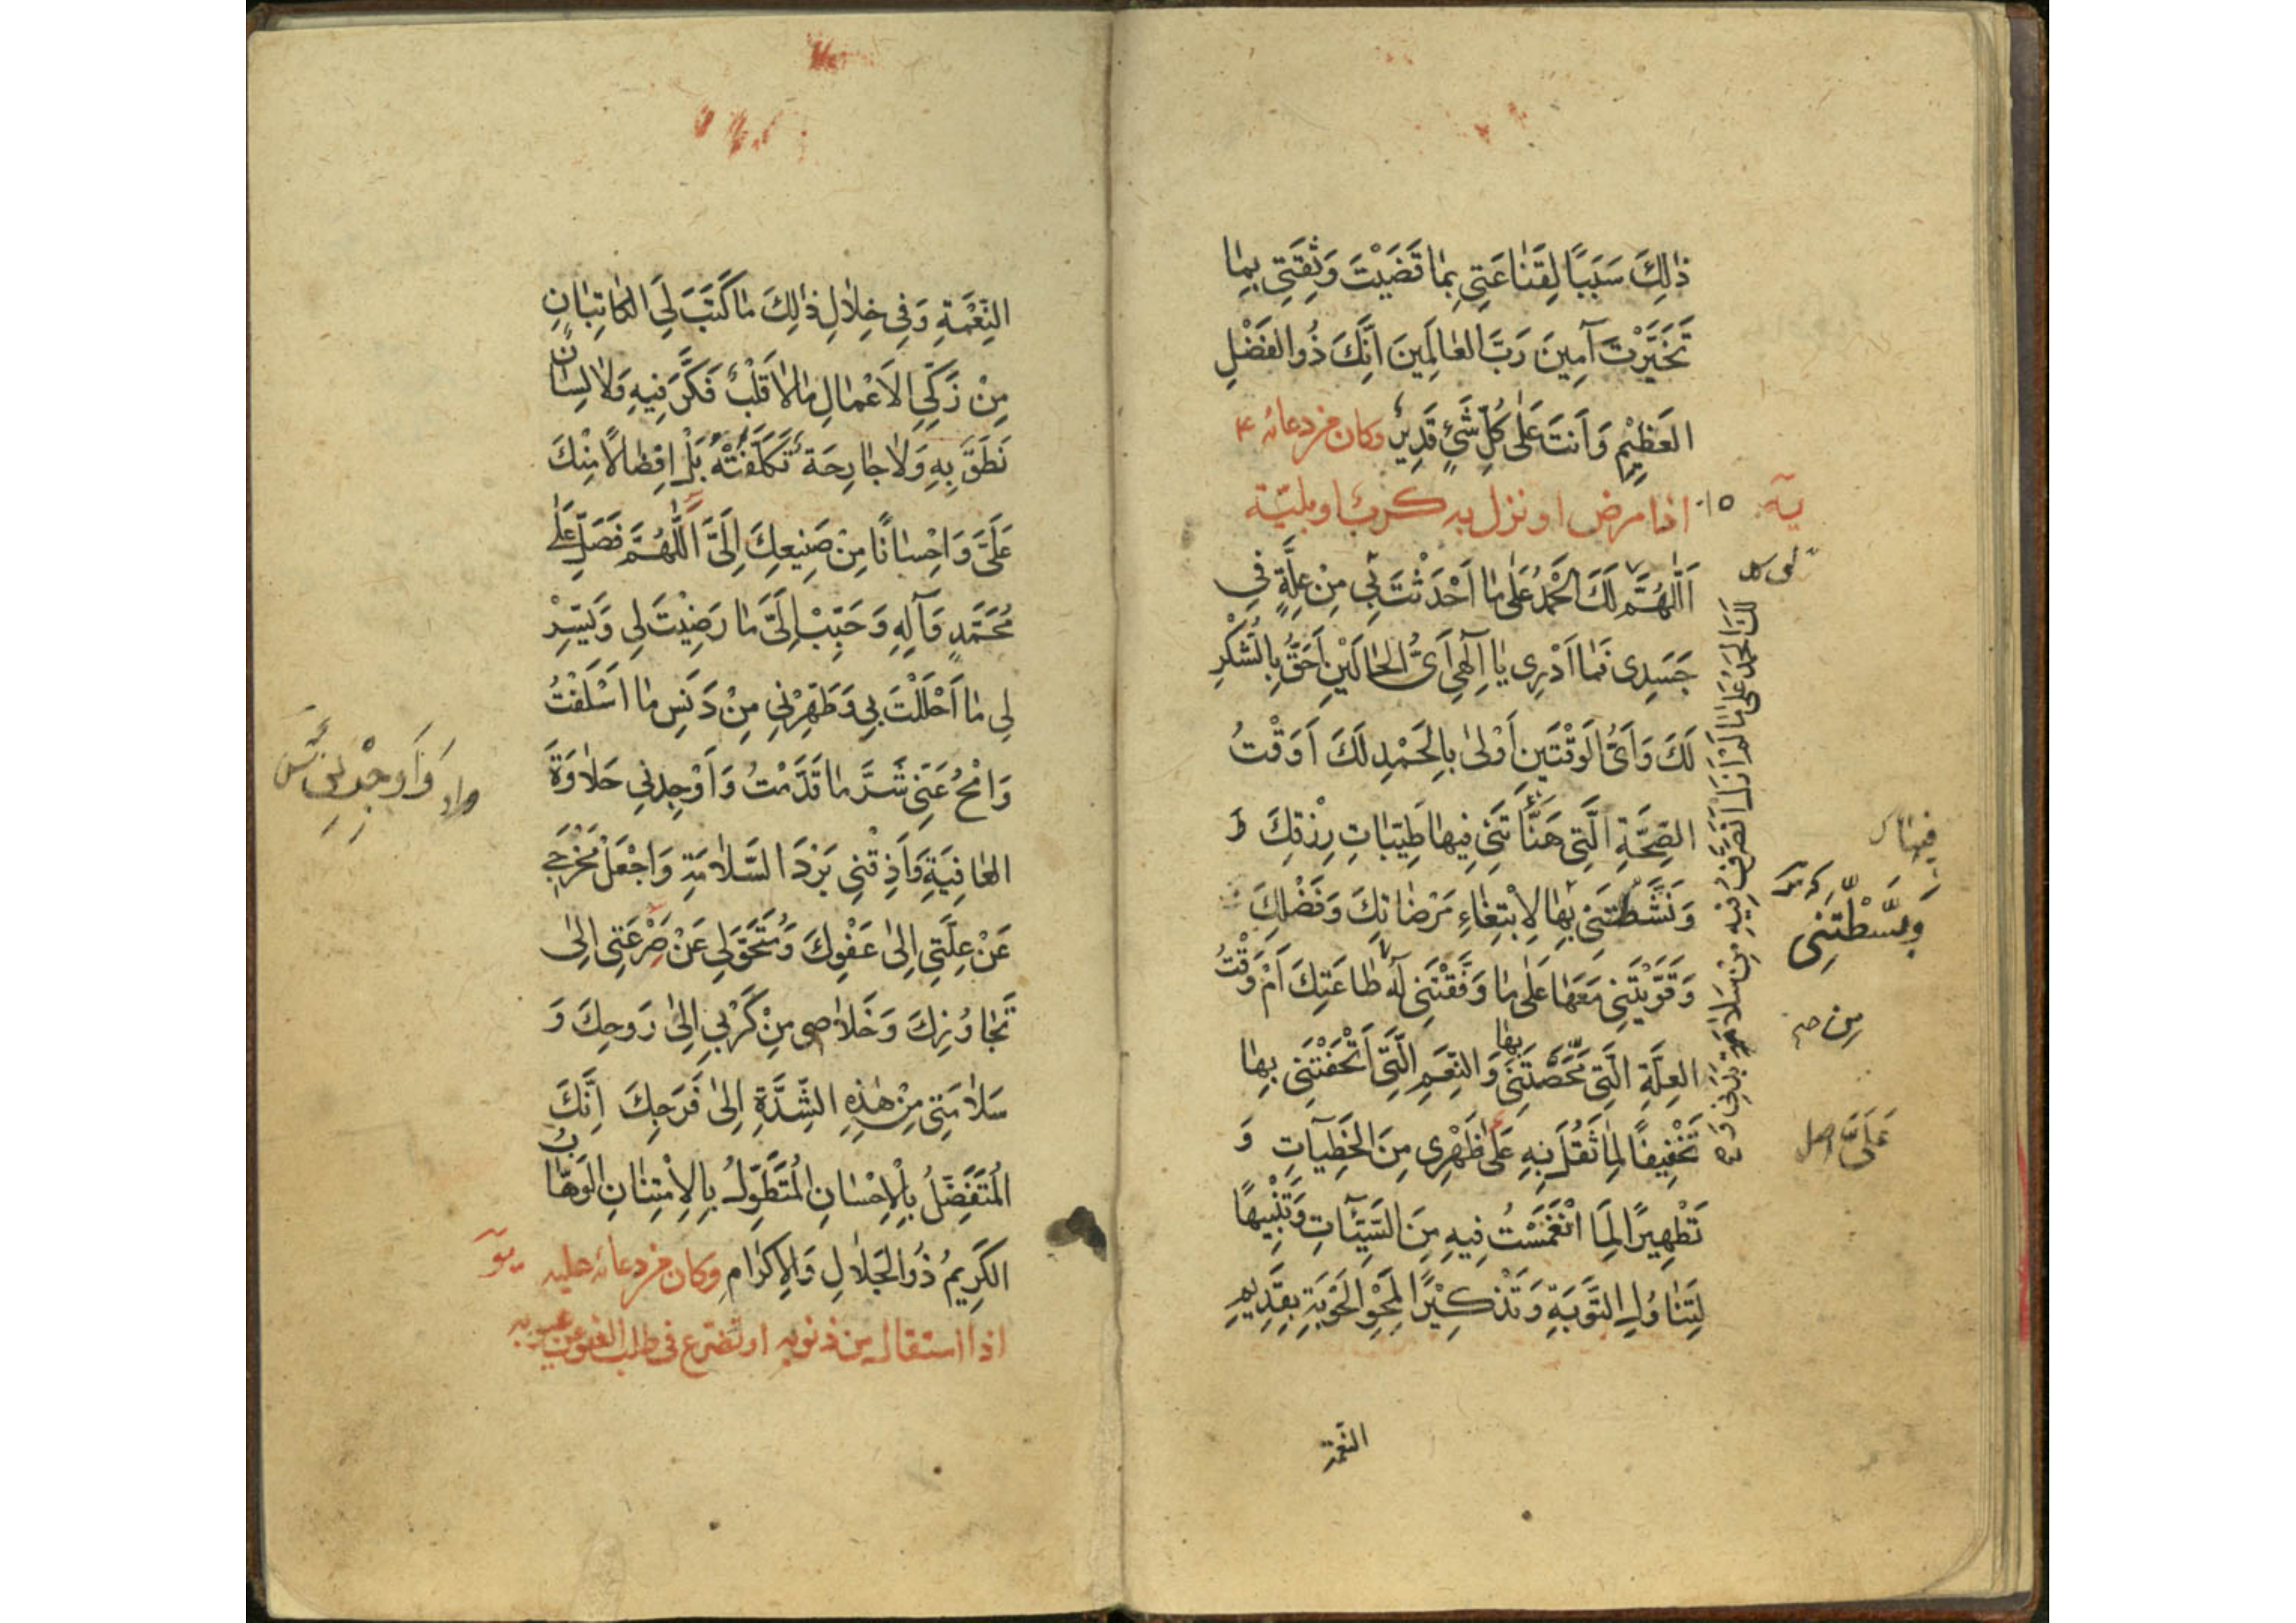 ذٰلِكَ سَبَبًا لِقَنٰاعَتِي بِمٰا قَضَيْتَ وَثِقَتِي بِمٰا
تَخَيَّرْتَ آمِينَ رَبَّ العٰالَمِينَ اِنَّكَ ذُو الفَضْلِ
العَظِيْمِ وَاَنتَ عَلٰى كُلِّ شَيْءٍ قَدِيرٌ وكان من دعائه ع
يه
١٥ اذا مرض او نزل به كرب او بليّة
اَللّٰهُمَّ لَكَ الحَمْدُ عَلٰى مٰا اَحْدَثْتَ بِي مِنْ عِلَّةٍ فِي
جَسَدِي فَمٰا اَدْرِي يٰا اِلٰهِي اَيُّ الحٰالَيْنِ اَحَقُّ بِالشُكْرِ
لَكَ وَاَيُّ الوَقْتَيْنِ اَوْلىٰ بِالحَمْدِ لَكَ اَوَقْتُ
الصِّحَّةِ الَّتِي هَنَّأْتَنِي فِيهٰا طَيِّبٰاتِ رِزْقِكَ وَ
وَنَشَّطْتَنِي بِهٰا لِابْتِغٰاءِ مَرْضٰاتِكَ وَفَضْلِكَ
وَقَوَّيْتَنِي مَعَهٰا عَلٰى مٰا وَفَّقْتَنِي لَهُ طٰاعَتِكَ اَمْ وَقْتُ
العِلَّةِ الَّتِي مَحَّصْتَنِي بِهٰا وَالنِّعَمِ الَّتِي اَتْحَفْتَنِي بِهٰا
تَخْفِيفًا لِمٰا ثَقُلَ بِهِ عَلىٰ ظَهْرِي مِنَ الخَطِيآتِ وَ
تَطْهِيرًا لِمَا انْغَمَسْتُ فِيهِ مِنَ السَّيِّئٰاتِ وَتَنْبِيهًا
لِتَنٰاوُلِ التَّوْبَةِ وَتَذْكِيْرًا لِمَحْوِ الحَوْبَةِ بِقَدِيمِ
النّعمة
لَكَ الحَمْدُ عَلىٰ مٰا لَمْ اَزَلْ اَتَصَرَّفُ فِيهِ مِنْ سَلاٰمَةِ بَدَنِي وَ
فِيهٰا
وَبَسَّطْتَنِي
مِن
عَلَيَّ اصل
النِّعْمَةِ وَفِي خِلاٰلِ ذٰلِكَ مٰا كَتَبَ لِيَ الكٰاتِبٰانِ
مِنْ زَكِيِّ الاَعْمٰالِ مٰا لاٰ قَلْبٌ فَكَّرَ فِيهِ وَلاٰ لِسٰانٌ
نَطَقَ بِهِ وَلاٰ جٰارِحَةٌ تَكَلَّفَتْهُ بَلْ اِفضٰالًا مِنْكَ
عَلَيَّ وَاِحْسٰانًا مِنْ صَنِيعِكَ اِلَيَّ اَللّٰهُمَّ فَصَلِّ عَلٰى
مُحَمَّدٍ وَآلِهِ وَحَبِّبْ اِلَيَّ مٰا رَضِيْتَ لِي وَيَسِّرْ
لِي مٰا اَحْلَلْتَ بِي وَطَهِّرْنِي مِنْ دَنَسِ مٰا اَسْلَفْتُ
وَامْحُ عَنِّي شَرَّ مٰا قَدَّمْتُ وَاَوْجِدنِي حَلاٰوَةَ
العٰافِيَةِ وَاَذِقْنِي بَرْدَ السَّلاٰمَةِ وَاجْعَلْ مَخْرَجِي
عَنْ عِلَّتِي اِلىٰ عَفْوِكَ وَمُتَحَوَّلِي عَنْ صَرْعَتِي اِلىٰ
تَجٰاوُزِكَ وَخَلاٰصِي مِنْ كَرْبِي اِلىٰ رَوحِكَ وَ
سَلاٰمَتِي مِنْ هٰذِهِ الشِّدَّةِ اِلىٰ فَرَجِكَ اِنَّكَ
المُتَفَضِّلُ بِالْاِحْسٰانِ المُتَطَوِّلُ بِالاِمْتِنٰانِ الوَهّٰابُ
الكَرِيمُ ذُو الجَلاٰلِ وَالاِكرٰامِ وكان من دعائه عليه
يو
اذا استقال من ذنوبه او تضرع فى طلب العفو عن عيوبه
وَاَوجِدْنِي